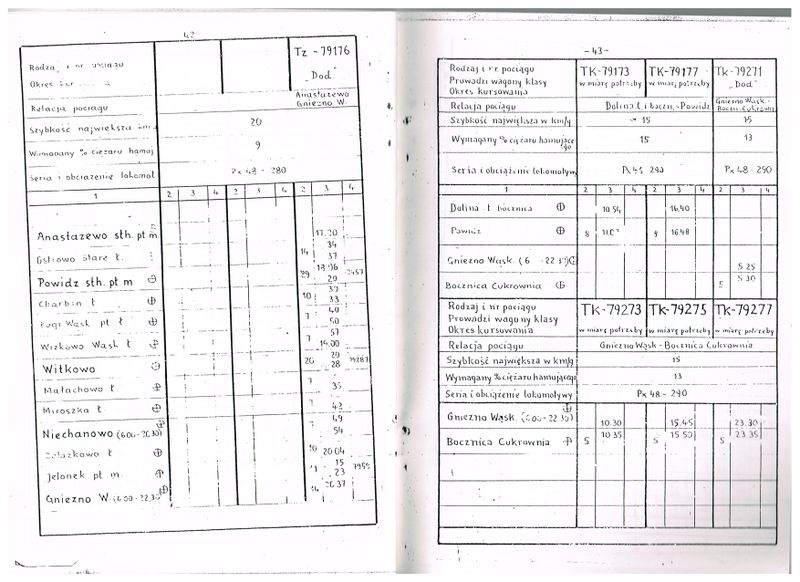 42
Tz - 79176
Rodzaj i nr pociągu
„Dod."
Okres
Anastazewo
Gniezno W.
Relacja pociągu
Szybkość największa km/g
20
Wymagany % ciężaru hamuj
9
Seria i obciążenie lokomot
Px 48 - 280
1 2 3 4 2 3 4 2 3 4
Anastazewo sth. pt m 17.20
34
Ostrowo Stare ł. 14 37
Powidz sth. pt m 29
Charbin ł 10 33
40
Ługi Wąsk pt ł 7 50
57
Witkowo Wąsk ł 7
20
Witkowo 20 28
Małachowo ł. 7 35
Miroszka ł 7 43
49
Niechanowo (6.00-20.30) 54
Żelazkowo ł 10 20.04
15
Jelonek pt m. 11 23
Gniezno W. 14 20.37
- 43 -
Rodzaj i nr pociągu TK-79173 TK-79177 Tk-79271
Prowadzi wagony klasy w miarę potrzeby w miarę potrzeby „Dod"
Okres kursowania
Relacja pociągu Dolina ł i boczn.-Powidz Gniezno Wąsk.-
Boczn. Cukrown
Szybkość największa w km/g 15 15
Wymagany % ciężaru hamujące
go 15 13
Seria i obciążenie lokomotyw Px48 290 Px 48-290
1 2 3 4 2 3 4 2 3 4
Dolina ł. bocznica 10.54 16.40
Powidz 8 8 16.48
Gniezno Wąsk. (6 -22.30)
5.25
Bocznica Cukrownia 5 5.30
Rodzaj i nr pociągu TK-79273 TK-79275 TK-79277
Prowadzi wagony klasy
Okres kursowania w miarę potrzeby w miarę potrzeby w miarę potrzeby
Relacja pociągu Gniezno Wąsk - Bocznica Cukrownia
Szybkość największa w km/g 15
Wymagany % ciężaru hamującego 13
Seria i obciążenie lokomotywy Px 48 - 290
Gniezno Wąsk. (6.00-22.30) 10.30 15.45 23.30
Bocznica Cukrownia 5 10.35 5 15.50 5 23.35